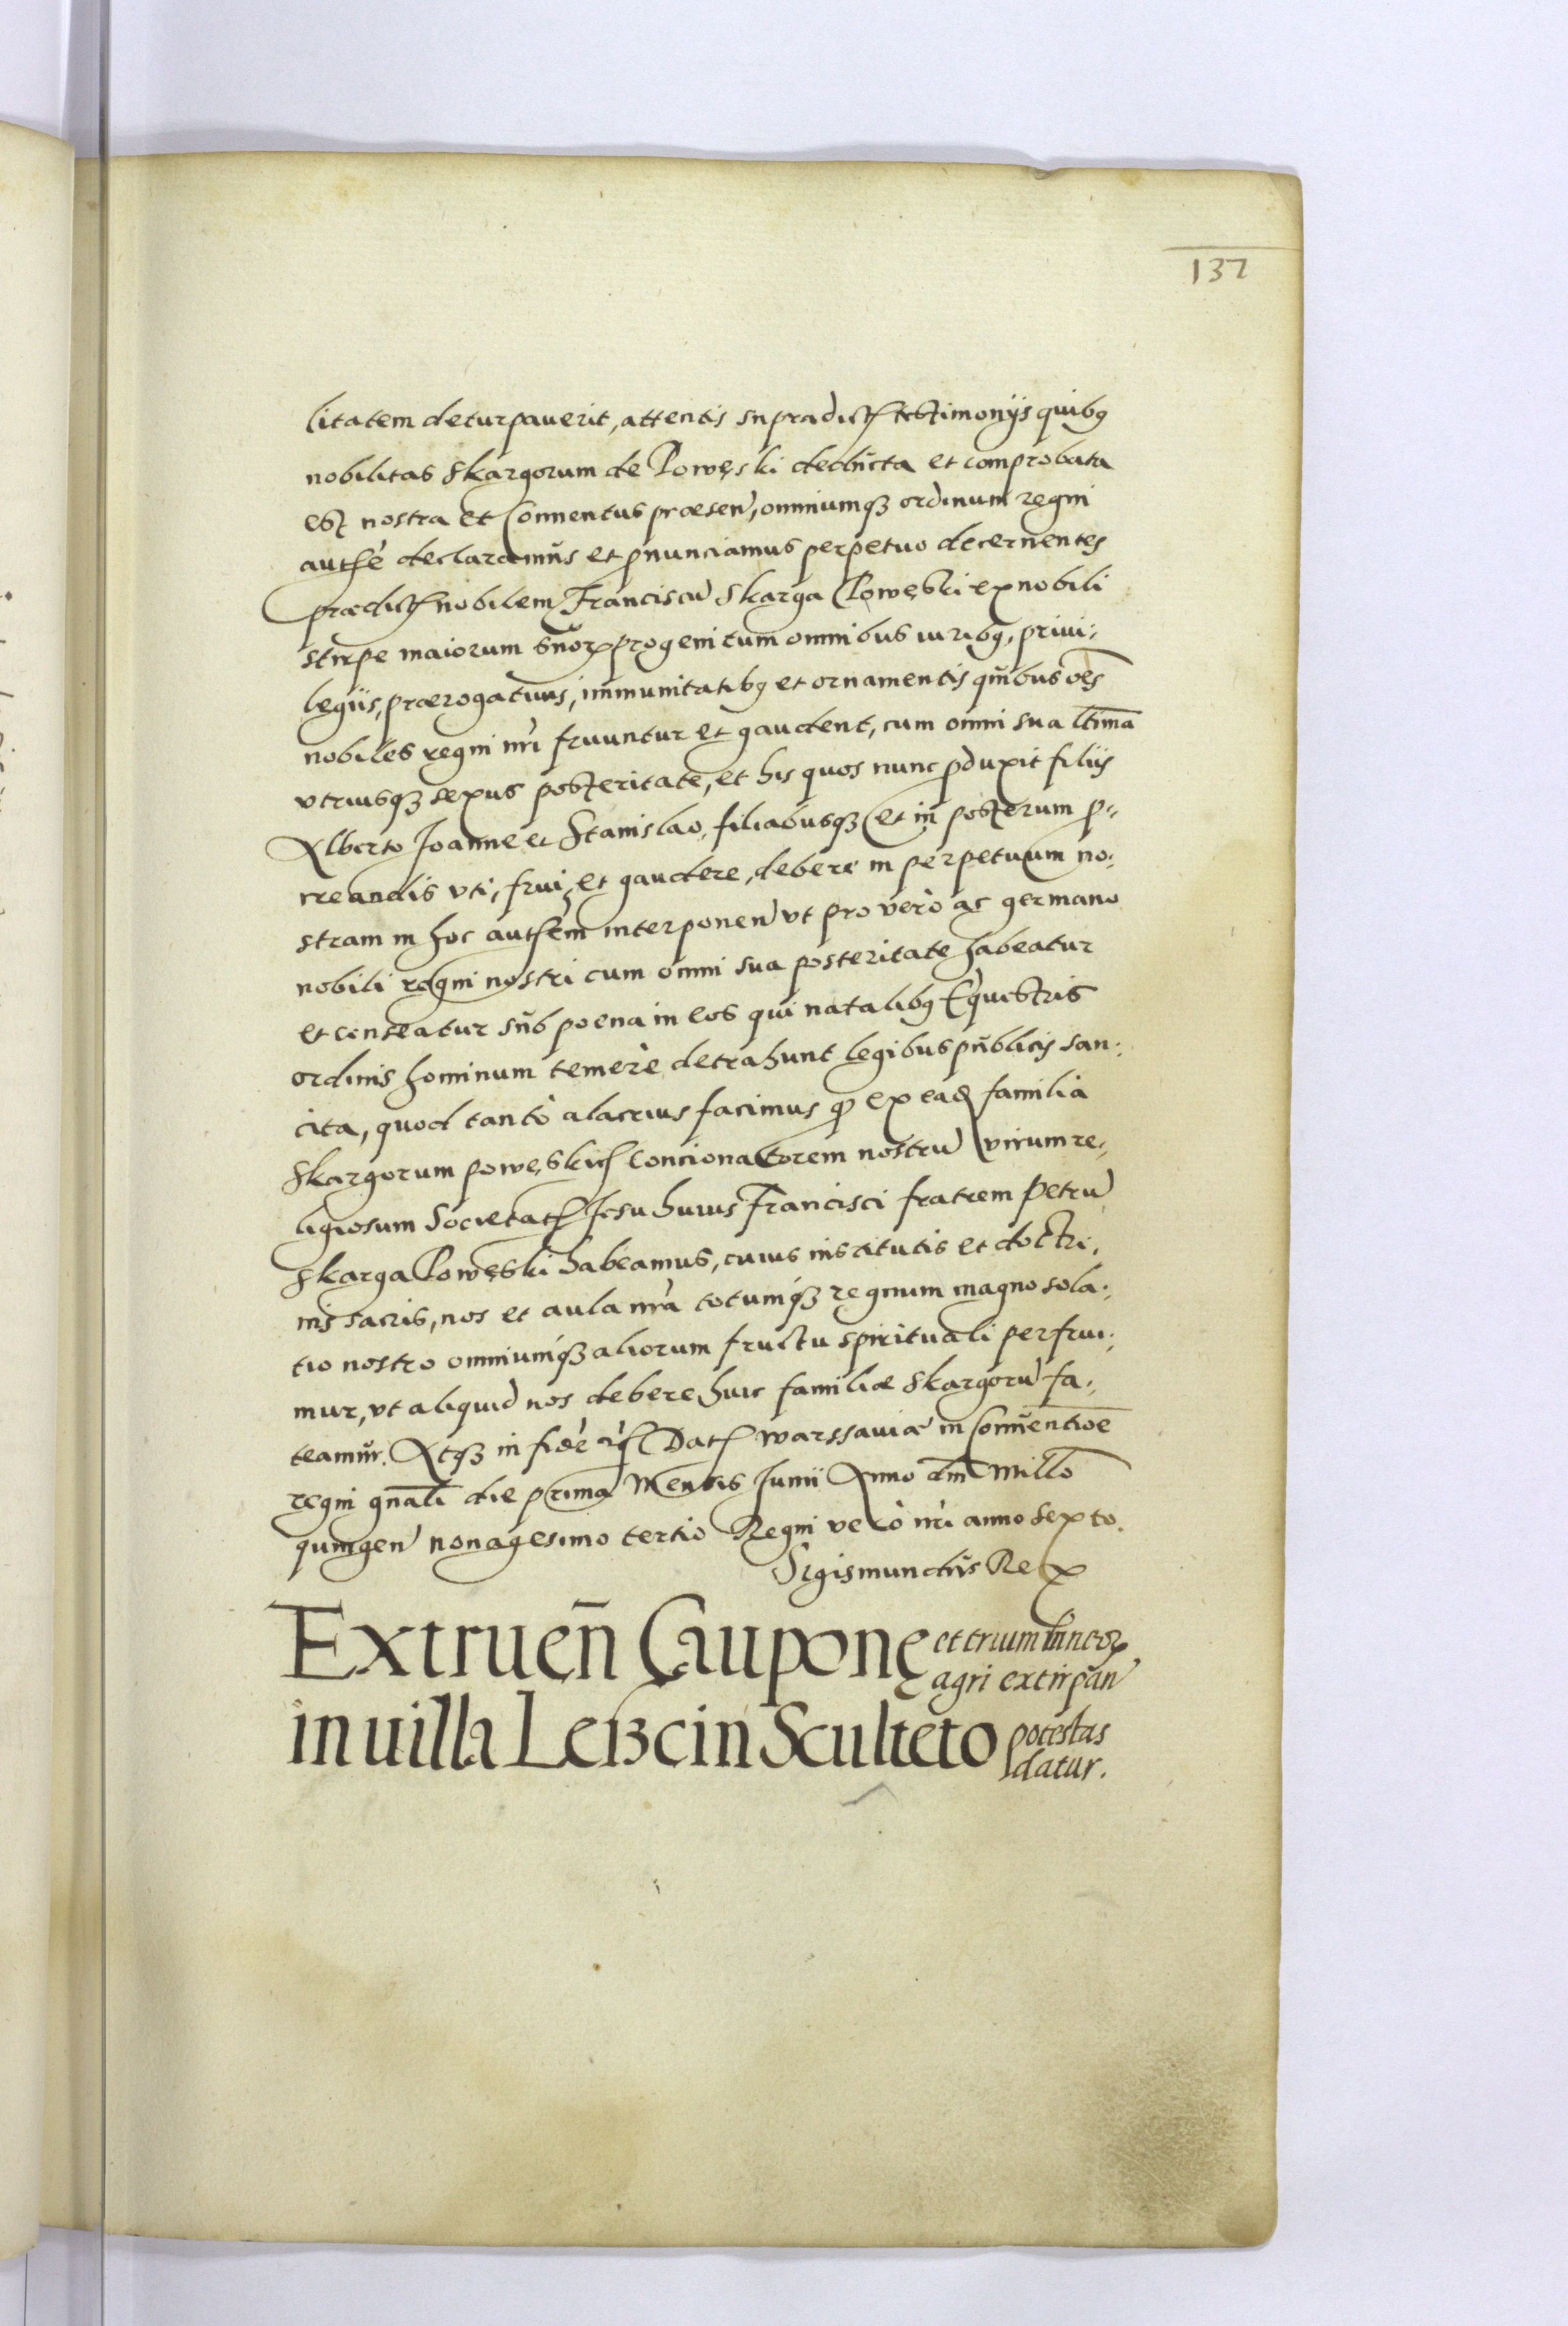 137
litatem deturpauerit, attentis supradict̃ testimonijs quibꝫ
nobilitas Skargorum de Powęski deducta et comprobata
est nostra et Conuentus præsen̄, omniumqꝫ ordinum regni
authẽ declaramus et ꝓnunciamus perpetuo decernentes
prædict̃ nobilem Franciscũ Skarga Powęski ex nobili
stirpe maiorum suoꝝ progenitum omnibus iuribꝫ, priui⸗
legijs, prærogatiuis, immunitatibꝫ et ornamentis quibus oẽs
nobiles regni nr̃i fruuntur et gaudent, cum omni sua ltĩma
vtriusqꝫ sexus posteritate, et his quos nunc ꝓduxit filijs
Alberto Joanne et Stanislao, filiabusqꝫ et in posterum ꝓ⸗
creandis vti, frui, et gaudere, debere in perpetuum no⸗
stram in hoc authẽm interponen̄ vt pro vero ac germano
nobili regni nostri cum omni sua posteritate habeatur
et censeatur sub poena in eos qui natalibꝫ Equestris
ordinis hominum temerè detrahunt legibus publicis san⸗
cita, quod tantò alacrius facimus ꝙ ex eađ familia
Skargorum powęskich Concionatorem nostrũ virum re⸗
ligiosum Societat̃ Jesu huius Francisci fratrem Petrũ
Skarga Powęski habeamus, cuius institutis et doctri⸗
nis sacris, nos et aula nr̃a totumqꝫ regnum magno sola⸗
tio nostro omniumqꝫ aliorum fructu spirituali perfrui⸗
mur, vt aliquid nos debere huic familiæ Skargorũ fa⸗
teamur. Atqꝫ in fidẽ Dat̃ Warssauiæ in Conuentiõe
regni gñali die prima Mensis Junii Anno dñi Millõ
quingen̄ nonagesimo tertio Regni verò nr̃i anno sexto.
Sigismundus Rex
Extruen̄ Cauponę et trium lineoꝝ
agri extirpan̄
in uilla Leßcin Sculteto potestas
datur.